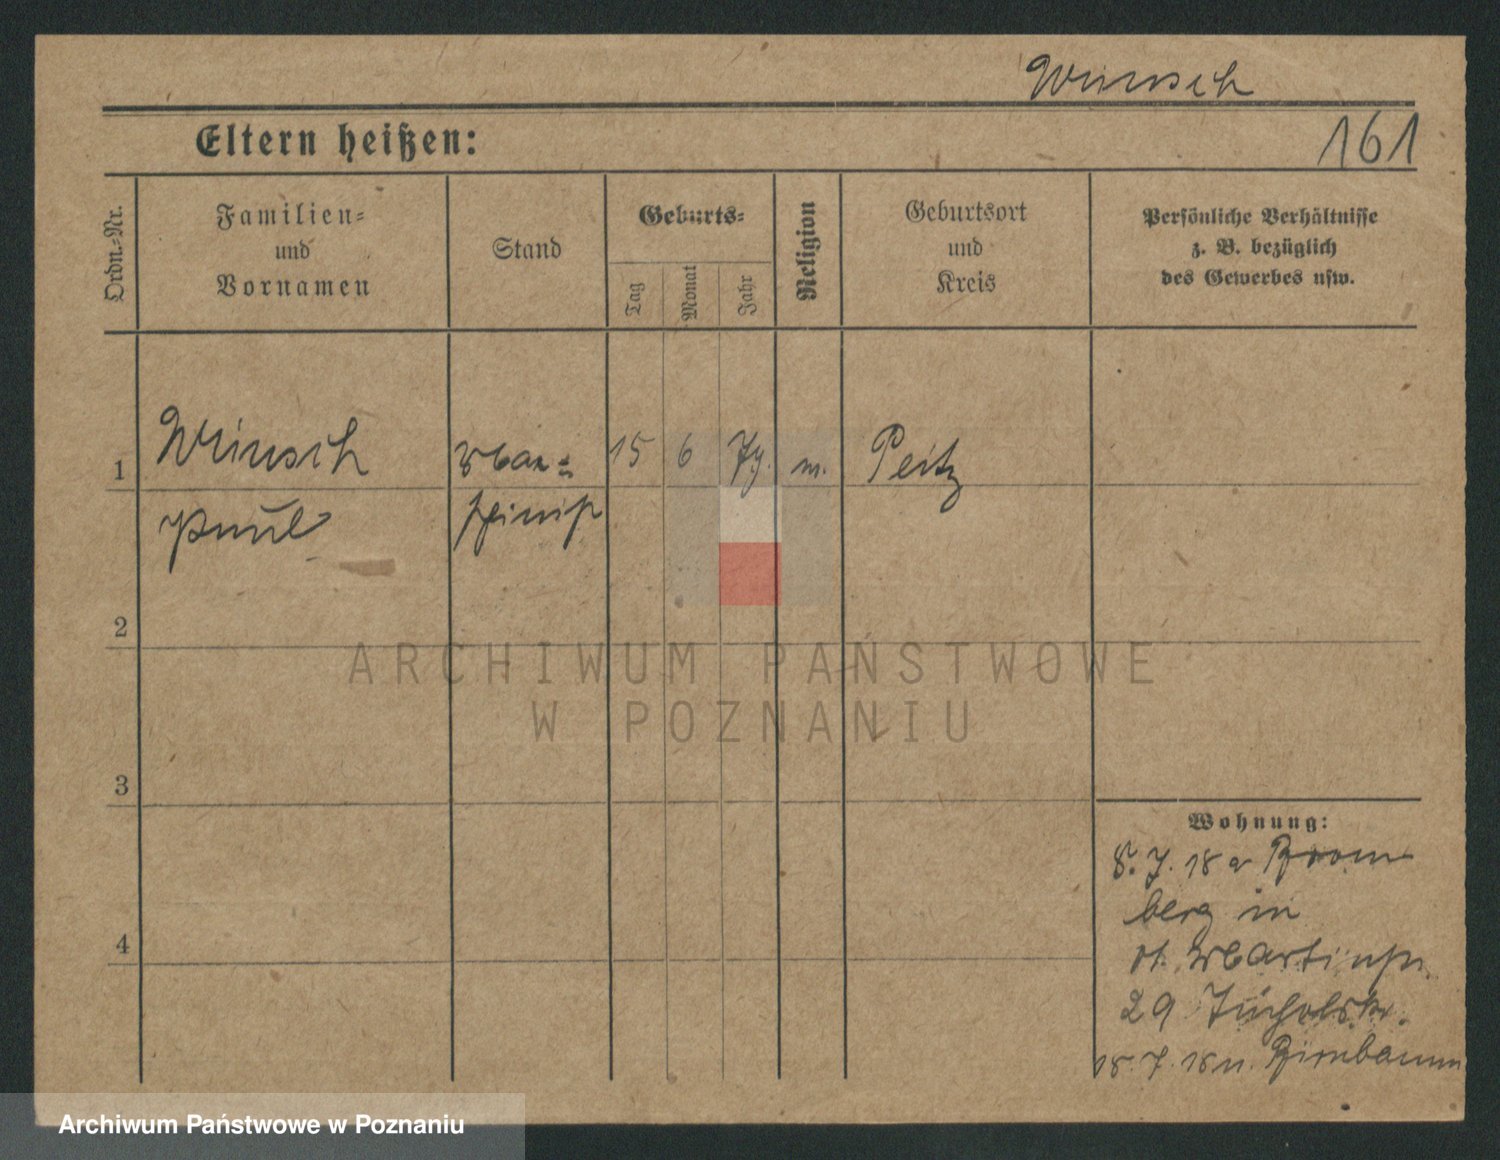 Wunsch
Eltern heißen:
161
Ordn.=Nr.
Familien=
und
Vornamen
Stand
Geburts=
Tag
Monat
Jahr
Religion
Geburtsort
und
Kreis
Persönliche Verhältnisse
z. B. bezüglich
des Gewerbes usw.
1
Wunsch
Paul
Ma=
schinist
15
6
79.
Peitz
2
3
4
Wohnung:
8. 7. 18 a Brom
berg in
St. Martinstr.
29
18. 7. 18 n. Birnbaum
ARCHIWUM PAŃSTWOWE
W POZNANIU
Archiwum Państwowe w Poznaniu